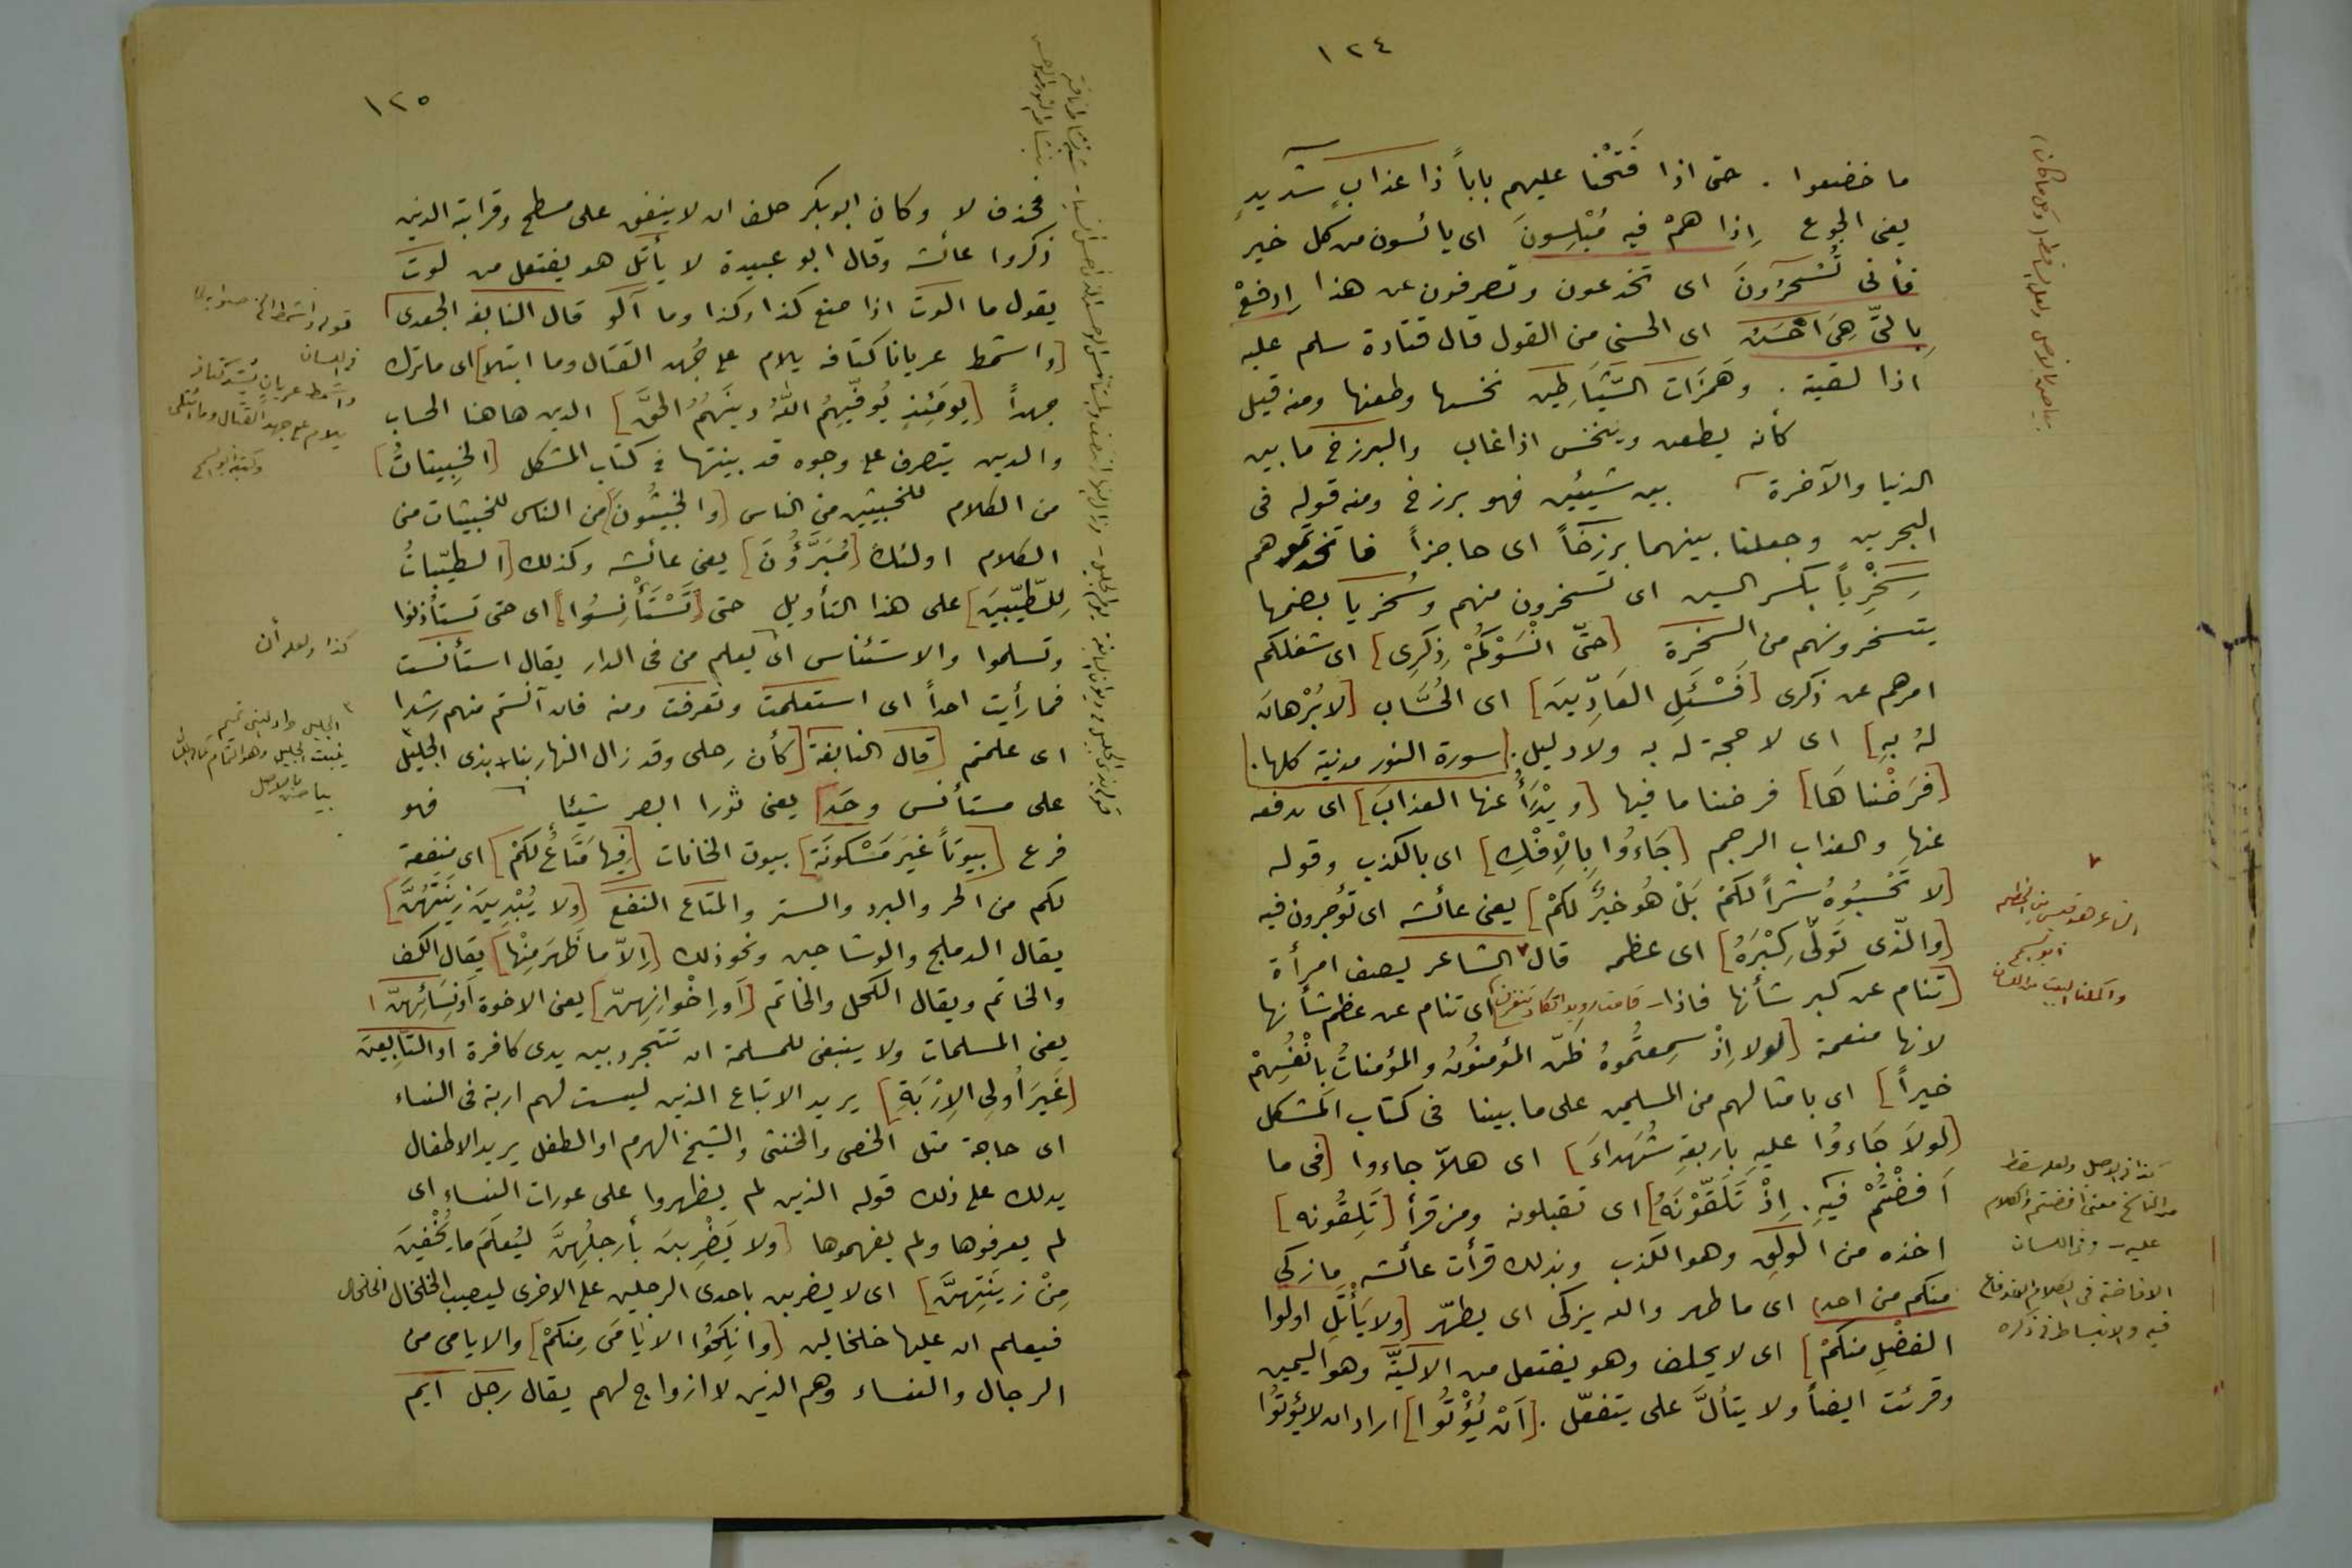 ١٢٤
ما خضعوا . حتى اذا فَتَحْنا عليهم باباً ذا عذابٍ شديدٍ
يعنى الجوع اِذا هُمْ فيه مُبْلِسونَ اى يائسون من كل خير
فأنى تُسْحَرُونَ اى تخدعون وتصرفون عن هذا اِدفعْ
بِالتّى هِىَ احْسَنُ اى الحسنى من القول قال قتادة سلم عليه
اذا لقيته . وهَمَزَات الشَّيَاطِين نخسها وطعنها ومنه قيل
كأنه يطعن وينخس اذا غاب والبرزخ ما بين
الدنيا والآخرة بين شيئين فهو برزخ ومنه قوله فى
البحرين وجعلنا بينهما برزخاً اى حاجزاً فاتخذتموهم
سِخْرِيّاً بكسر السين اى تسخرون منهم وسُخريا بضمها
يتسخرونهم من السخرة [حتّى انْسَوْكُمْ ذِكرِى] اى شغلكم
امرهم عن ذكرى [فَسْئَلِ العَادّينَ] اى الحُسَّاب [لا بُرْهانَ
لهُ بهِ] اى لا حجة له به ولا دليل . [سورة النور مدنية كلها .]
[فَرَضْناهَا] فرضنا ما فيها [ويَدْرَأُ عنها العذابَ] اى يدفعه
عنها والعذاب الرجم [جَاءُوا بِالْاِفْكِ] اى بالكذب وقوله
[لا تَحْسبُوهُ شراً لكمْ بَلْ هُو خيرٌ لكمْ] يعنى عائشه اى تؤجرون فيه
[والّذى تَولّى كِبْرَهُ] اى عظمه قال الشاعر يصف امرأة
[تنام عن كبر شأنها فاذا قامت رويدا تكاد تنغرف] اى تنام عن عظم شأنها
لانها منعمة [لولا اِذْ سمِعتُموهُ ظَنّ المؤمنُونُ والمؤمناتُ بِانْفُسِهمْ
خيراً] اى بامثالهم من المسلمين على ما بينا فى كتاب المشكل
[لولا جَاءوُا عليهِ باربعةِ شُهَداءَ] اى هلّا جاءوا [فى ما
اَفضْتُمْ فيهِ . اِذْ تَلَقّوْنَهُ] اى تقبلونه ومن قرأ [تَلِقُونه]
اخذه من الولَقِ وهو الكذب وبذلك قرأت عائشه ما زكى
منكم من احد) اى ما طهر والله يزكى اى يطهّر [ولا يَأْتَلِ اولوا
الفضْلِ منكمْ] اى لا يحلف وهو يفتعل من الاليّة وهو اليمين
وقرئت ايضاً ولا يتألَّ على يتفعّل . [اَنْ يُؤْتُوا] اراد ان لا يؤتوا
الشاعر هو قيس بن الخطيم
واكملنا البيت من اللسان
كذا فى الاصل ولعله سقط
من الناسخ معنى افضتم والكلام
عليه - وفى اللسان
الافاضة فى الكلام الاندفاع
فيه والانبساط فى ذكره
١٢٥
فحذف لا وكان ابو بكر حلف ان لا ينفق على مسطح وقرابة الذين
ذكروا عائشه وقال ابو عبيدة لا يأتل هو يفتعل من لوت
يقول ما الوت اذا صنع كذا وكذا وما آلو قال النابغه الجعدى
[واشمط عريانا كتافه يلام على جُهد القتال وما ابتلا] اى ما ترك
جهداً [يومَئِذٍ يُوفّيهِمُ اللهُ دينَهمُ الحقَّ] الدين هاهنا الحساب
والدين يتصرف على وجوه قد بينتها فى كتاب المشكل [الخبيثاتُ]
من الكلام للخبيثين من الناس [والخبيثُونَ] من الناس للخبيثات من
الكلام اولئك [مُبَرَّؤُنَ] يعنى عائشه وكذلك [الطيّباتُ
لِلطّيّبينَ] على هذا التأويل حتى [تَسْتَأْنِسُوا] اى حتى تستأذنوا
وتسلموا والاستئناس اى يعلم من فى الدار يقال استأنست
فما رأيت احداً اى استعلمت وتعرفت ومنه فان آنستم منهم رشدا
اى علمتم [قال النابغة] [كأن رحلى وقد زال النهار بنا بذى الجليل
على مستأنس وحَد] يعنى ثورا ابصر شيئا فهو
فزع [بيوتاً غيرَ مَسْكونَة] بيوت الخانات [فيها مَتَاعٌ لكمْ] اى منفعة
لكم من الحر والبرد والستر والمتاع النفع [ولا يُبْدِينَ زينَتَهُنَّ]
يقال الدملج والوشاحين ونحو ذلك [اِلاّ ما ظَهرَ مِنْها] يقال الكف
والخاتم ويقال الكحل والخاتم [اَو اِخْوانِهِنّ] يعنى الاخوة اَونِسَائِهنّ]
يعنى المسلمات ولا ينبغى للمسلمة ان تتجرد بين يدى كافرة او التّابِعينَ
[غَيرَ اُولى الاِرْبَةِ] يريد الاتباع الذين ليست لهم اربة فى النساء
اى حاجة مثل الخصى والخنثى والشيخ الهرم او الطفل يريد الاطفال
يدلك على ذلك قوله الذين لم يظهروا على عورات النساء اى
لم يعرفوها ولم يفهموها [ولا يَضْرِبنَ بأرجلُهِنَّ ليُعلَمَ ما يُخْفينَ
مِنْ زينَتِهنَّ] اى لا يضربن باحدى الرجلين على الاخرى ليصيب الخلخال الخلخال
فيعلم ان عليها خلخالين [وانكِحُوا الايَامَى مِنكمْ] والايامى من
الرجال والنساء وهم الذين لا ازواج لهم يقال رجل ايم
فى اللسان
واشمط عريانٍ يُشد كتافه
يلام على جهد القتال وما ائتلى
كذا ولعله أن
الجليل واد لبنى تميم
ينبت الجليل وهو الثمام
بياض بالاصل